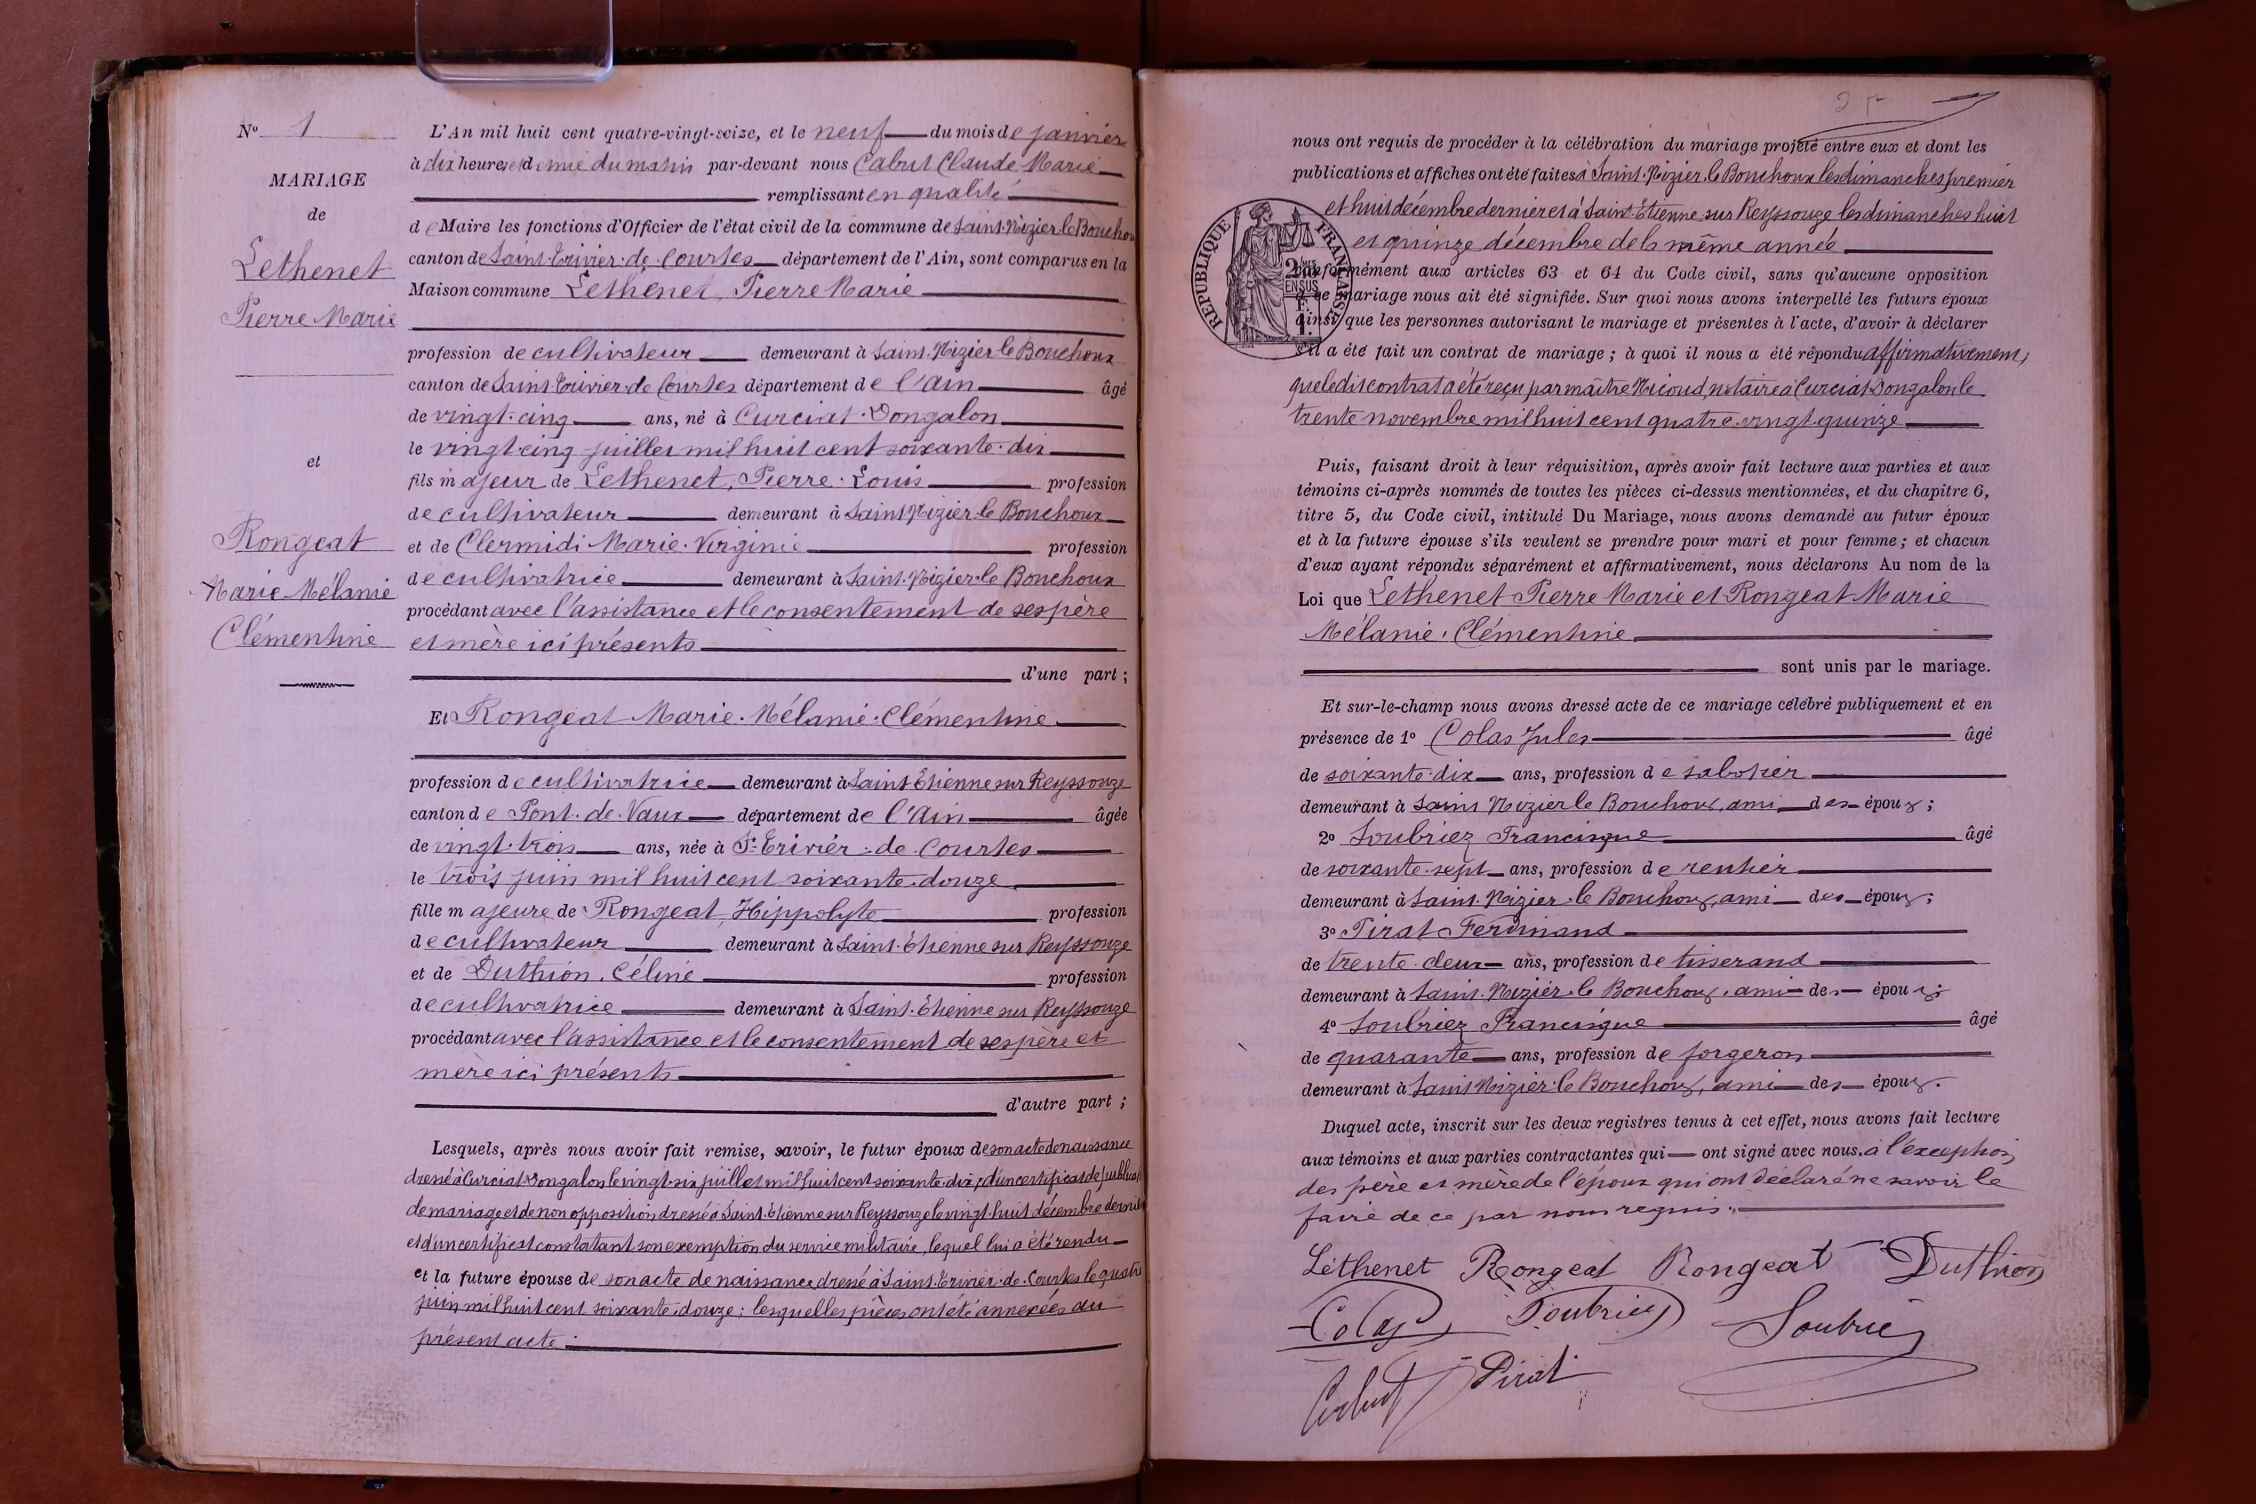 N° 1
MARIAGE
de
Lethenet
Pierre Marie
et
Rongeat
Marie Mélanie
Clémentine
L'An mil huit cent quatre-vingt-seize, et le neuf du mois de janvier
à dix heures et demie du matin par-devant nous Cabut Claude Marie
remplissant en qualité
de Maire les fonctions d'Officier de l'état civil de la commune de Saint-Nizier-le-Bouchoux
canton de Saint-Trivier-de-Courtes département de l'Ain, sont comparus en la
Maison commune Lethenet, Pierre Marie
profession de cultivateur demeurant à Saint-Nizier-le-Bouchoux
canton de Saint-Trivier-de-Courtes département de l'Ain âgé
de vingt-cinq ans, né à Curciat-Dongalon
le vingt-cinq juillet mil huit cent soixante-dix
fils majeur de Lethenet, Pierre-Louis profession
de cultivateur demeurant à Saint-Nizier-le-Bouchoux
et de Clermidi Marie-Virginie profession
de cultivatrice demeurant à Saint-Nizier-le-Bouchoux
procédant avec l'assistance et le consentement de ses père
et mère ici présents
d'une part ;
Et Rongeat Marie-Mélanie-Clémentine
profession de cultivatrice demeurant à Saint-Etienne sur Reyssouze
canton de Pont-de-Vaux département de l'Ain âgée
de vingt-trois ans, née à St-Trivier-de-Courtes
le trois juin mil huit cent soixante-douze
fille majeure de Rongeat, Hippolyte profession
de cultivateur demeurant à Saint-Etienne sur Reyssouze
et de Duthion, Céline profession
de cultivatrice demeurant à Saint-Etienne sur Reyssouze
procédant avec l'assistance et le consentement de ses père et
mère ici présents
d'autre part ;
Lesquels, après nous avoir fait remise, savoir, le futur époux de son acte de naissance
dressé à Curciat-Dongalon le vingt-six juillet mil huit cent soixante-dix, d'un certificat de
de mariage et de non opposition dressé à Saint-Etienne sur Reyssouze le vingt-huit décembre dernier
et d'un certificat constatant son exemption du service militaire, lequel lui a été rendu
et la future épouse de son acte de naissance dressé à Saint-Trivier-de-Courtes le quatre
juin mil huit cent soixante-douze ; lesquelles pièces ont été annexées au
présent acte.
nous ont requis de procéder à la célébration du mariage projeté entre eux et dont les
publications et affiches ont été faites à Saint-Nizier-le-Bouchoux les dimanches premier
et huit décembre dernier et à Saint-Etienne sur Reyssouze les dimanches huit
et quinze décembre de la même année
conformément aux articles 63 et 64 du Code civil, sans qu'aucune opposition
à ce mariage nous ait été signifiée. Sur quoi nous avons interpellé les futurs époux
ainsi que les personnes autorisant le mariage et présentes à l'acte, d'avoir à déclarer
s'il a été fait un contrat de mariage ; à quoi il nous a été répondu affirmativement,
que ledit contrat a été reçu par maître Nicoud, notaire à Curciat-Dongalon le
trente novembre mil huit cent quatre-vingt-quinze
RÉPUBLIQUE FRANÇAISE
Puis, faisant droit à leur réquisition, après avoir fait lecture aux parties et aux
témoins ci-après nommés de toutes les pièces ci-dessus mentionnées, et du chapitre 6,
titre 5, du Code civil, intitulé Du Mariage, nous avons demandé au futur époux
et à la future épouse s'ils veulent se prendre pour mari et pour femme ; et chacun
d'eux ayant répondu séparément et affirmativement, nous déclarons Au nom de la
Loi que Lethenet Pierre Marie et Rongeat Marie
Mélanie-Clémentine
sont unis par le mariage.
Et sur-le-champ nous avons dressé acte de ce mariage célébré publiquement et en
présence de 1° Colas Jules âgé
de soixante-dix ans, profession de sabotier
demeurant à Saint Nizier le Bouchoux, ami des époux ;
2° Soubriez Francisque âgé
de soixante-sept ans, profession de rentier
demeurant à Saint-Nizier-le Bouchoux, ami des époux ;
3° Pirat Ferdinand
de trente-deux ans, profession de tisserand
demeurant à Saint-Nizier-le Bouchoux, ami des époux ;
4° Soubriez Francisque âgé
de quarante ans, profession de forgeron
demeurant à Saint Nizier-le Bouchoux, ami des époux.
Duquel acte, inscrit sur les deux registres tenus à cet effet, nous avons fait lecture
aux témoins et aux parties contractantes qui ont signé avec nous, à l'exception
des père et mère de l'époux qui ont déclaré ne savoir le
faire de ce par nous requis.
Léthenet Rongeat Rongeat Duthion
Colas Soubriez Soubriez
Cabut Pirat